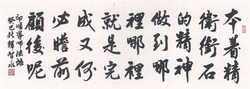 本着精
衛銜石
的精神
做到哪
裡哪裡
就是完
成何
必瞻前
顧後呢
印順導師法語